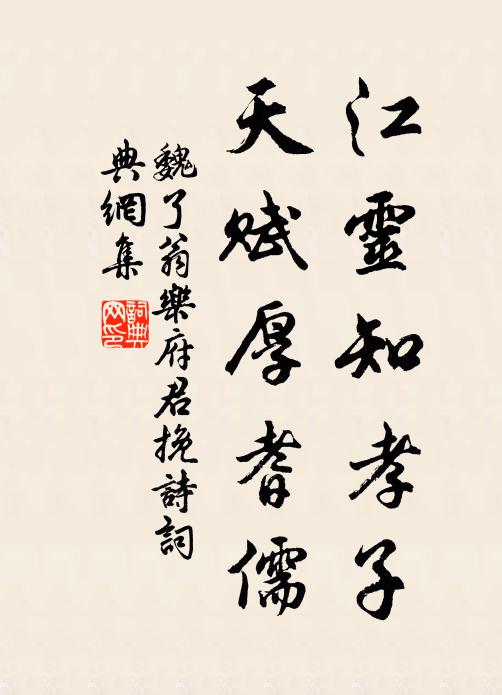 江靈知孝子
天賦厚耆儒
魏了翁樂府君挽詩詞
典網集
詞典
网印